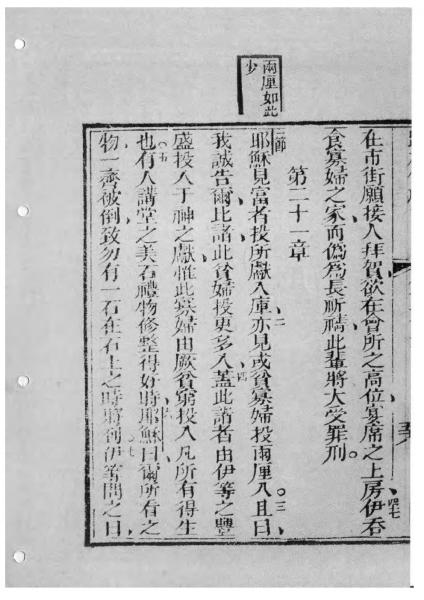 兩厘如此
少
在市街願接人拜賀欲在會所之高位宴席之上房伊吞
四七
食寡婦之家而偽為長祈禱此輩將大受罪刑
第二十一章
一節
耶穌見富者投所獻入庫亦見或貧寡婦投兩厘入且曰
二
三
我誠告爾比諸此貧婦投更多入蓋此諸者由伊等之豐
四
盛投入于神之獻惟此寡婦由厥貧窮投入凡所有得生
也有人講堂之美石禮物修整得好時耶穌曰爾所看之
五
六
物一齊被倒致勿有一石在石上之時將到伊等問之曰
七